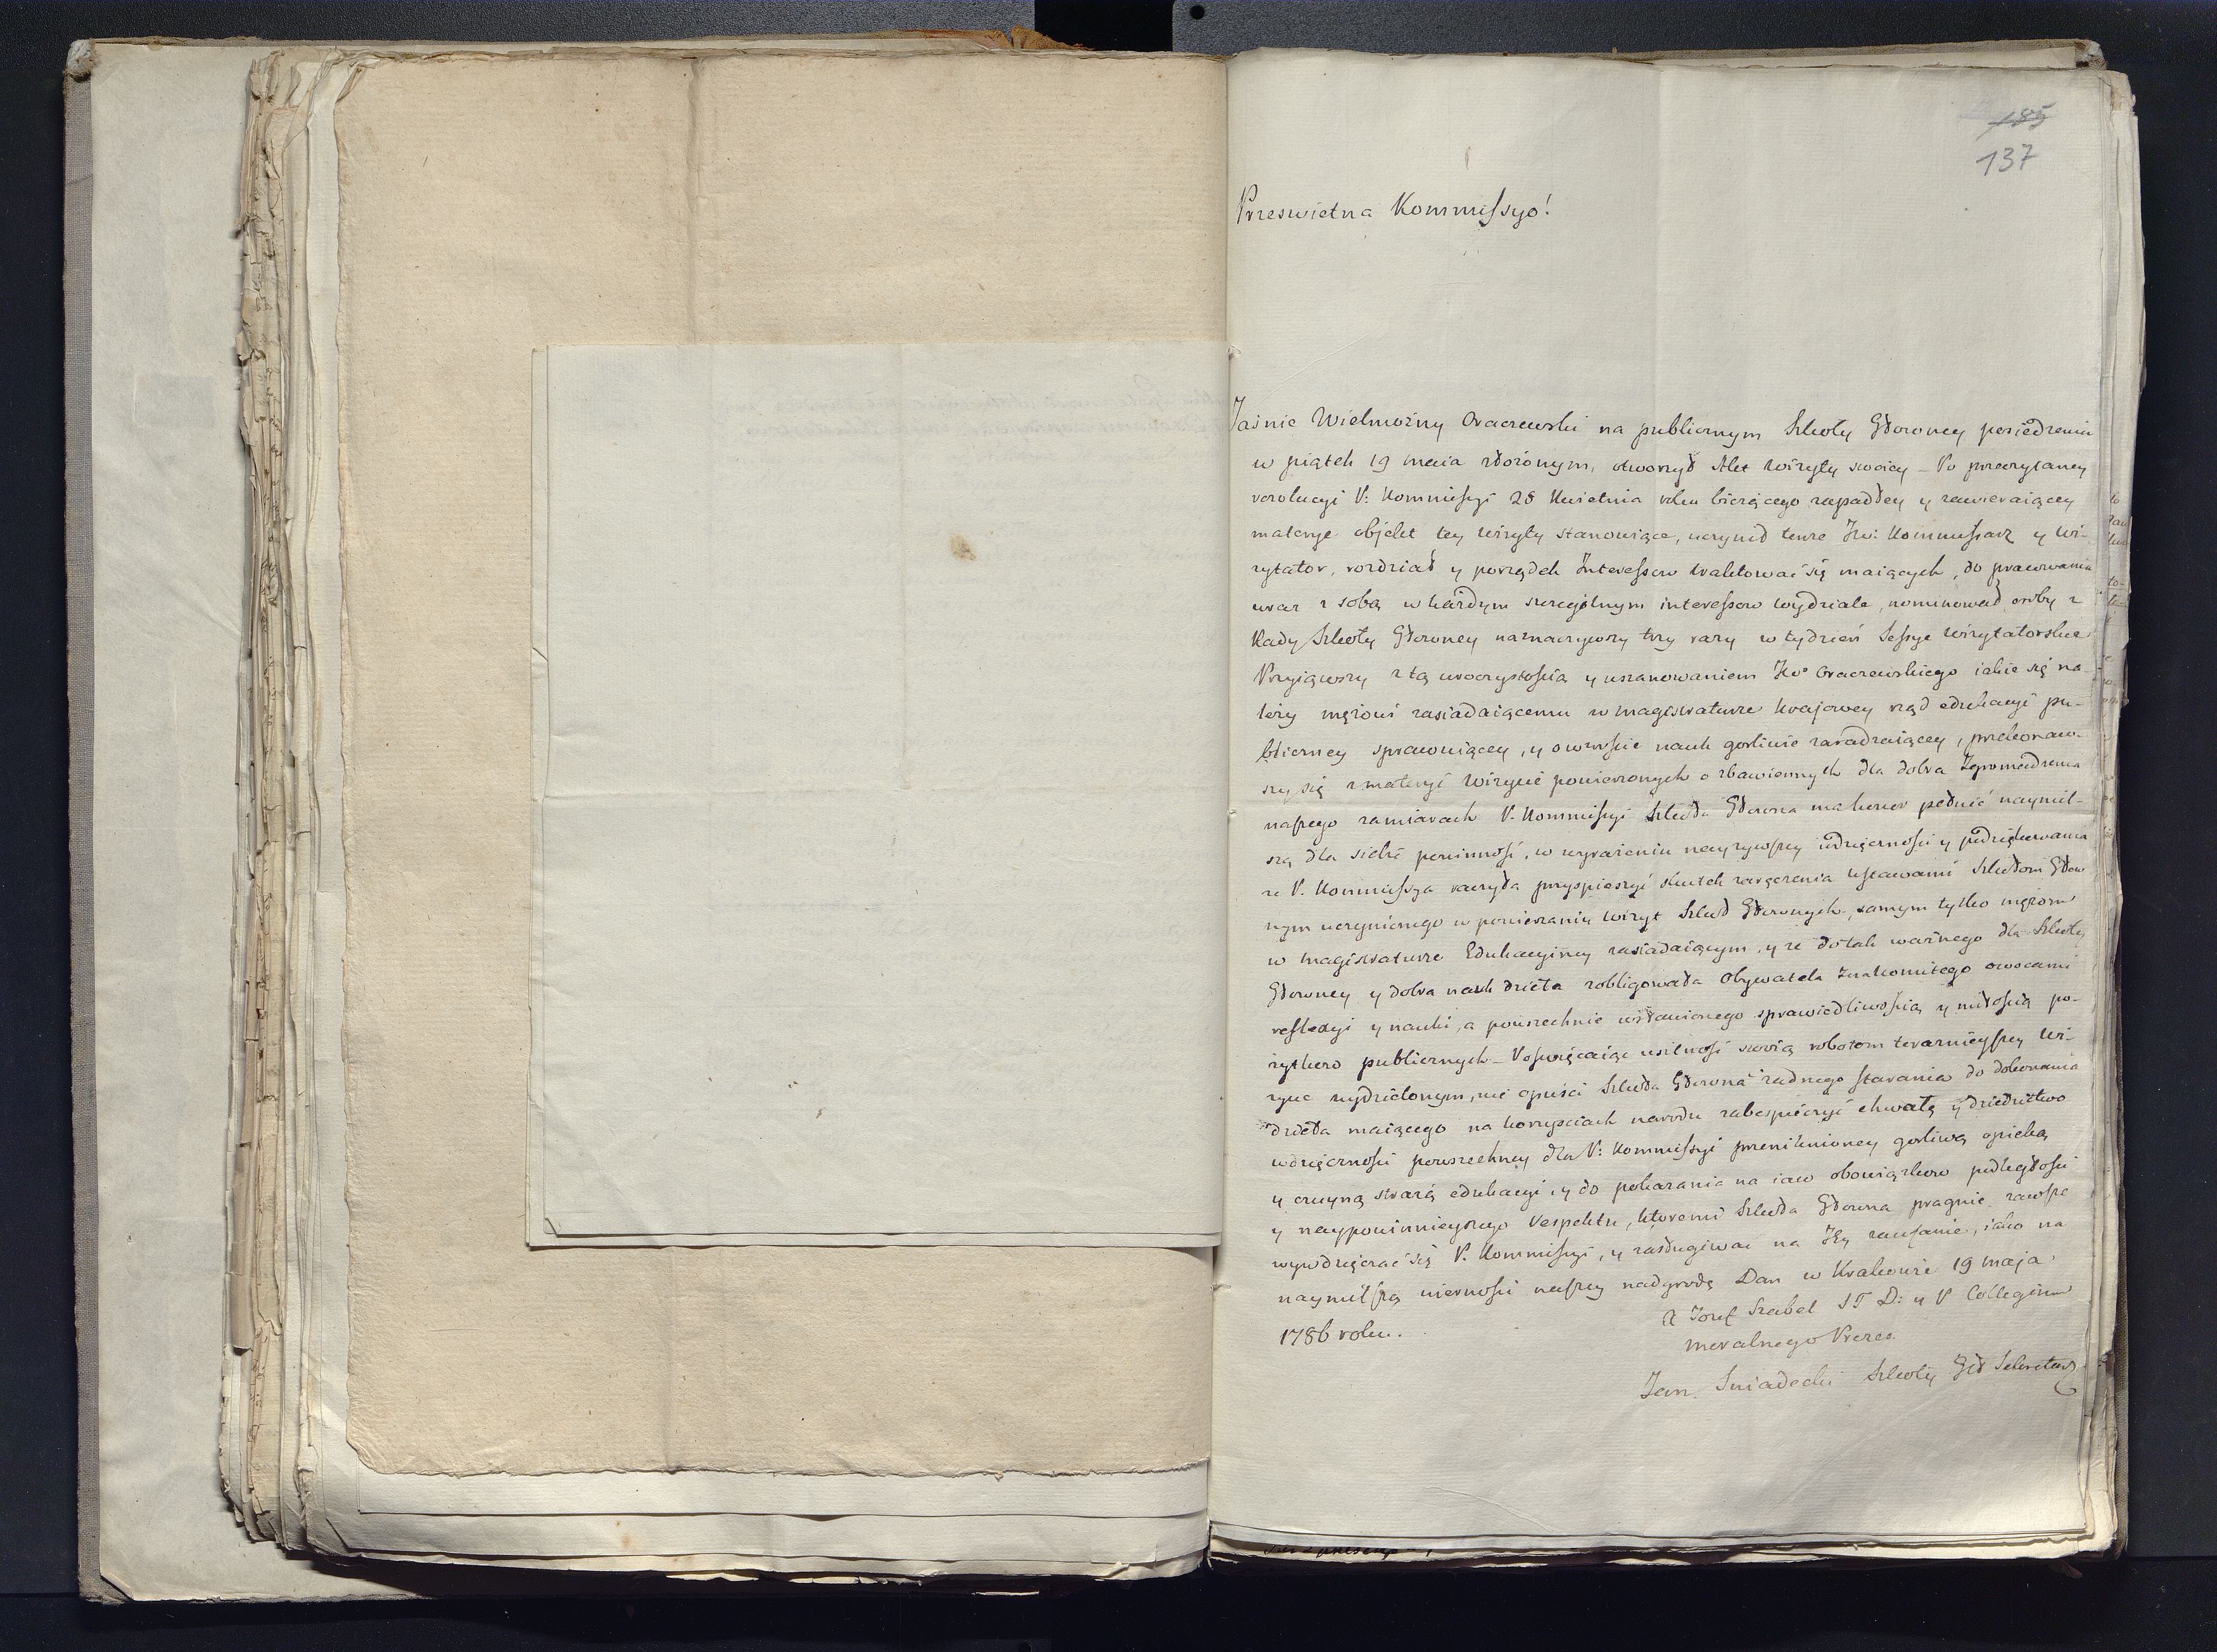 185
137
Przeswietna Kommissyo!
Jaśnie Wielmożny Oraczewski na publicznym Szkoły Głowney posiedzeniu
w piątek 19 maia złożonym, otworzył Akt Wizyty swoiey – Po przeczytaney
rezolucyi P: Kommissyi 28 Kwietnia roku bieżącego zapadłey y zawieraiącey
materye objekt tey Wizyty stanowiące, uczynił tenże Jw: Kommissarz y Wi-
zytator, rozdział y porządek Interessow traktować się maiących, do pracowania
wraz z sobą w każdym szczegolnym interessow wydziale, nominował osoby z
Rady Szkoły Głowney naznaczywszy trzy razy w tydzień Sessye Wizytatorskie
Przyiąwszy z tą uroczystością y uszanowaniem Jwo Oraczewskiego iakie się na-
leży mężowi zasiadaiącemu w magistraturze krajowey rząd edukacyi pu-
bliczney sprawuiącey, y o wzroście nauk gorliwie zaradzaiącey, przekonaw-
szy się z materyi Wizycie powierzonych o zbawiennych dla dobra Zgromadzenia
naszego zamiarach P. Kommissyi Szkoła Głowna ma honor pełnić naymil-
szą dla siebie powinność, w wyrażeniu nayżywszey wdzięczności y podziękowania
że P. Kommissya raczyła przyspieszyć skutek zaręczenia Ustawami Szkołom Głow
nym uczynionego w powierzaniu Wizyt Szkoł Głownych, samym tylko mężom
w magistraturze Edukacyiney zasiadaiącym, y że do tak ważnego dla Szkoły
Głowney y dobra nauk dzieła zobligowała Obywatela Znakomitego owocami
reflexyi y nauki, a powszechnie wsławionego sprawiedliwością y miłością po-
żytkow publicznych – Poswięcaiąc usilność swoią robotom teraźnieyszey Wi-
zycie wydzielonym, nie opuści Szkoła Głowna żadnego starania do dokonania
dzieła maiącego na korzyściach narodu zabespieczyć chwałę y dziedzictwo
wdzięczności powszechney dla P: Kommissyi przeniknioney gorliwą opieką
y czuyną strażą edukacyi, y do pokazania na iaw obowiązkow podległości
y naypowinnieyszego respektu, ktoremi Szkoła Głowna pragnie zawsze
wywdzięczać się P. Kommissyi, y zasługiwać na Jey zaufanie, iako na
naymilszą wierności naszey nadgrodę Dan w Krakowie 19 maja
1786 roku.
X Jozef Szabel ST D: y P Collegium
moralnego Prezes
Jan Sniadecki Szkoły Gł Sekretarz